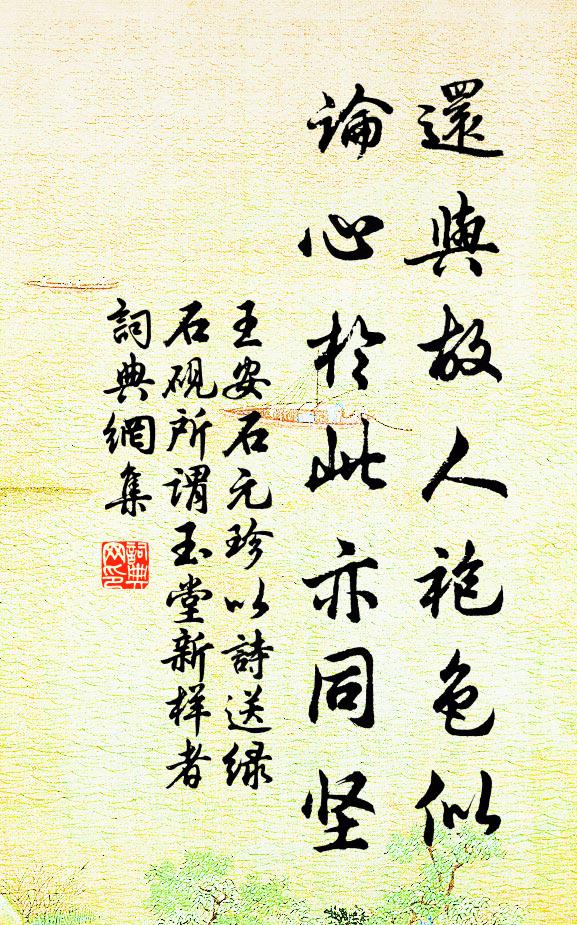 還與故人袍色似
論心於此亦同坚
王安石元珍以詩送緑
石砚所谓玉堂新样者
詞典網集
詞典网印